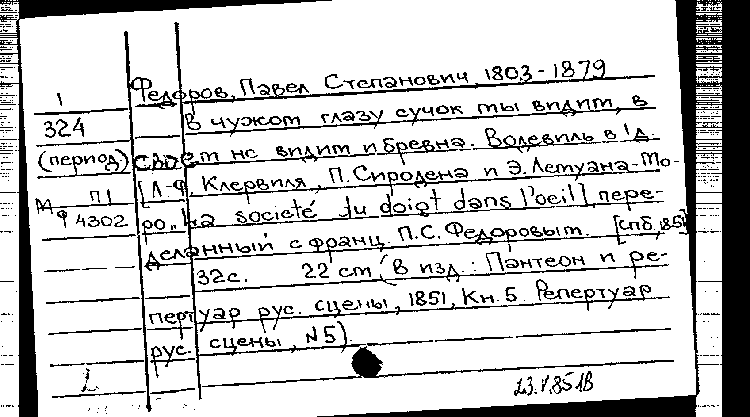 1 Федоров, Павел Степанович, 1803-1879
324 В чужом глазу сучок ты видим, в
(период) своем не видим и бревна. Водевиль в 1 д.
М П1 [Л-Ф. Клервиля, П. Сиродена и Э. Летуана-Мо-
ф 4302 ро „La societé du doigt dans l'oeil], пере-
деланный с франц. П.С. Федоровым. [Спб, 1851]
32с. 22 cm (В изд.: Пантеон и ре-
пертуар рус. сцены, 1851, Кн. 5. Репертуар
рус. сцены, №5)
23.V.85